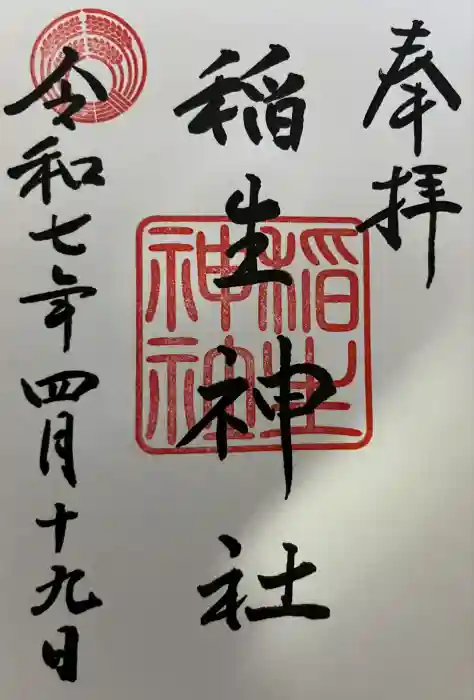 奉拝
稲生神社
稲生
神社
令和七年四月十九日